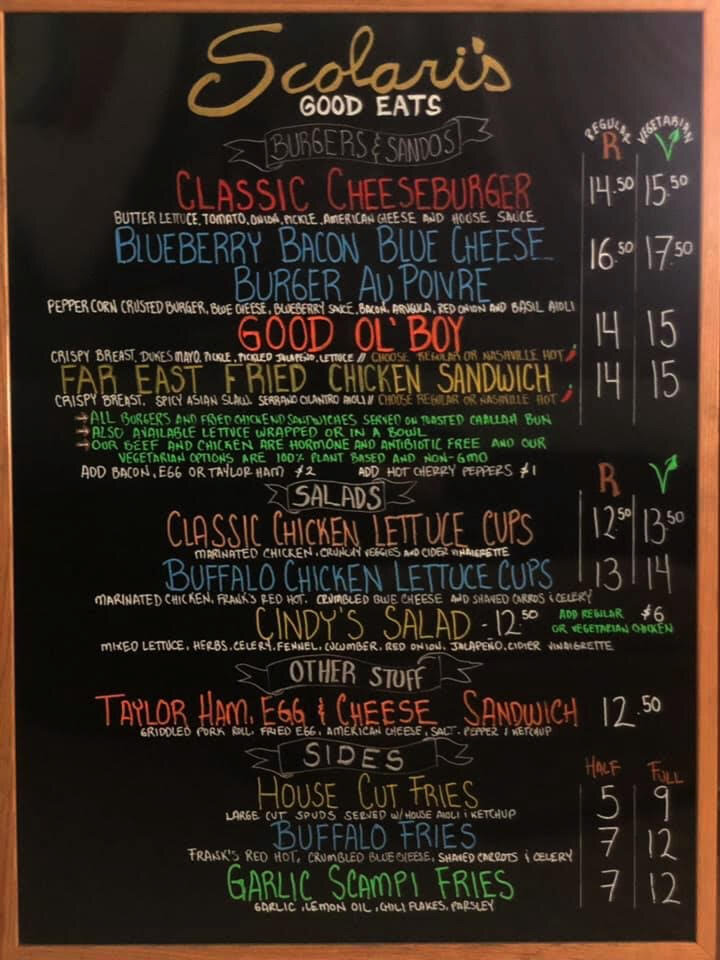 Scolari's
GOOD EATS
BURGERS & SANDOS
REGULAR VEGETARIAN
R V
CLASSIC CHEESEBURGER 14.50 15.50
BUTTER LETTUCE, TOMATO, ONION, PICKLE, AMERICAN CHEESE AND HOUSE SAUCE
BLUEBERRY BACON BLUE CHEESE
BURGER AU POIVRE 16.50 17.50
PEPPERCORN CRUSTED BURGER, BLUE CHEESE, BLUEBERRY SAUCE, BACON, ARUGULA, RED ONION AND BASIL AIOLI
GOOD OL' BOY 14 15
CRISPY BREAST, DUKES MAYO, PICKLE, PICKLED JALAPENO, LETTUCE // CHOOSE REGULAR OR NASHVILLE HOT
FAR EAST FRIED CHICKEN SANDWICH 14 15
CRISPY BREAST, SPICY ASIAN SLAW, SERRANO CILANTRO AIOLI // CHOOSE REGULAR OR NASHVILLE HOT
→ ALL BURGERS AND FRIED CHICKEN SANDWICHES SERVED ON TOASTED CHALLAH BUN
→ ALSO AVAILABLE LETTUCE WRAPPED OR IN A BOWL
→ OUR BEEF AND CHICKEN ARE HORMONE AND ANTIBIOTIC FREE AND OUR
VEGETARIAN OPTIONS ARE 100% PLANT BASED AND NON-GMO
ADD BACON, EGG OR TAYLOR HAM $2 ADD HOT CHERRY PEPPERS $1
SALADS
R V
CLASSIC CHICKEN LETTUCE CUPS 12.50 13.50
MARINATED CHICKEN, CRUNCHY VEGGIES AND CIDER VINAIGRETTE
BUFFALO CHICKEN LETTUCE CUPS 13 14
MARINATED CHICKEN, FRANK'S RED HOT, CRUMBLED BLUE CHEESE AND SHAVED CARROTS & CELERY
CINDY'S SALAD - 12.50 ADD REGULAR $6
OR VEGETARIAN CHICKEN
MIXED LETTUCE, HERBS, CELERY, FENNEL, CUCUMBER, RED ONION, JALAPENO, CIDER VINAIGRETTE
OTHER STUFF
TAYLOR HAM, EGG & CHEESE SANDWICH 12.50
GRIDDLED PORK ROLL, FRIED EGG, AMERICAN CHEESE, SALT, PEPPER & KETCHUP
SIDES
HALF FULL
HOUSE CUT FRIES 5 9
LARGE CUT SPUDS SERVED W/ HOUSE AIOLI & KETCHUP
BUFFALO FRIES 7 12
FRANK'S RED HOT, CRUMBLED BLUE CHEESE, SHAVED CARROTS & CELERY
GARLIC SCAMPI FRIES 7 12
GARLIC, LEMON OIL, CHILI FLAKES, PARSLEY